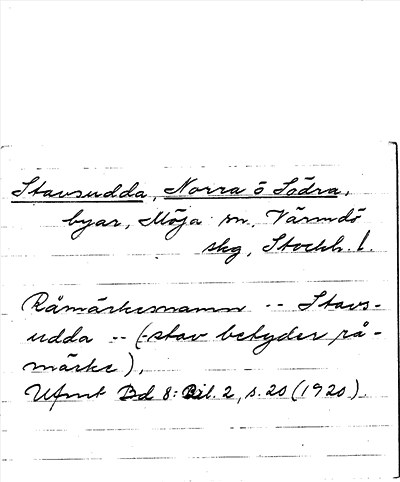 Stavsudda, Norra o Södra,
byar, Möja sn, Värmdö
skg, Stockh. l.
Råmärkesnamn -- Stavs-
udda -- (-stav betyder rå-
märke).
Ufmt Bd 8: Bil. 2, s. 20 (1920).